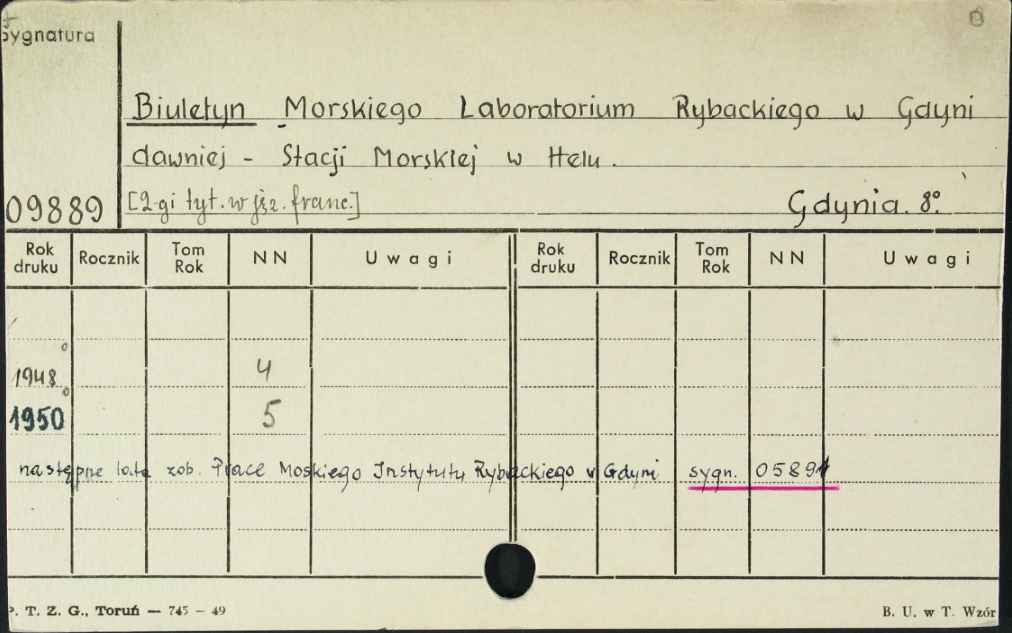 Sygnatura
Biuletyn Morskiego Laboratorium Rybackiego w Gdyni
dawniej - Stacji Morskiej w Helu.
09889 [2-gi tyt. w jęz. franc.] Gdynia. 8°.
Rok druku Rocznik Tom Rok NN Uwagi Rok druku Rocznik Tom Rok NN Uwagi
1948 4
1950 5
następne lata zob. Prace Moskiego Instytutu Rybackiego w Gdyni sygn. 05891
P. T. Z. G., Toruń — 745 – 49 B. U. w T. Wzór